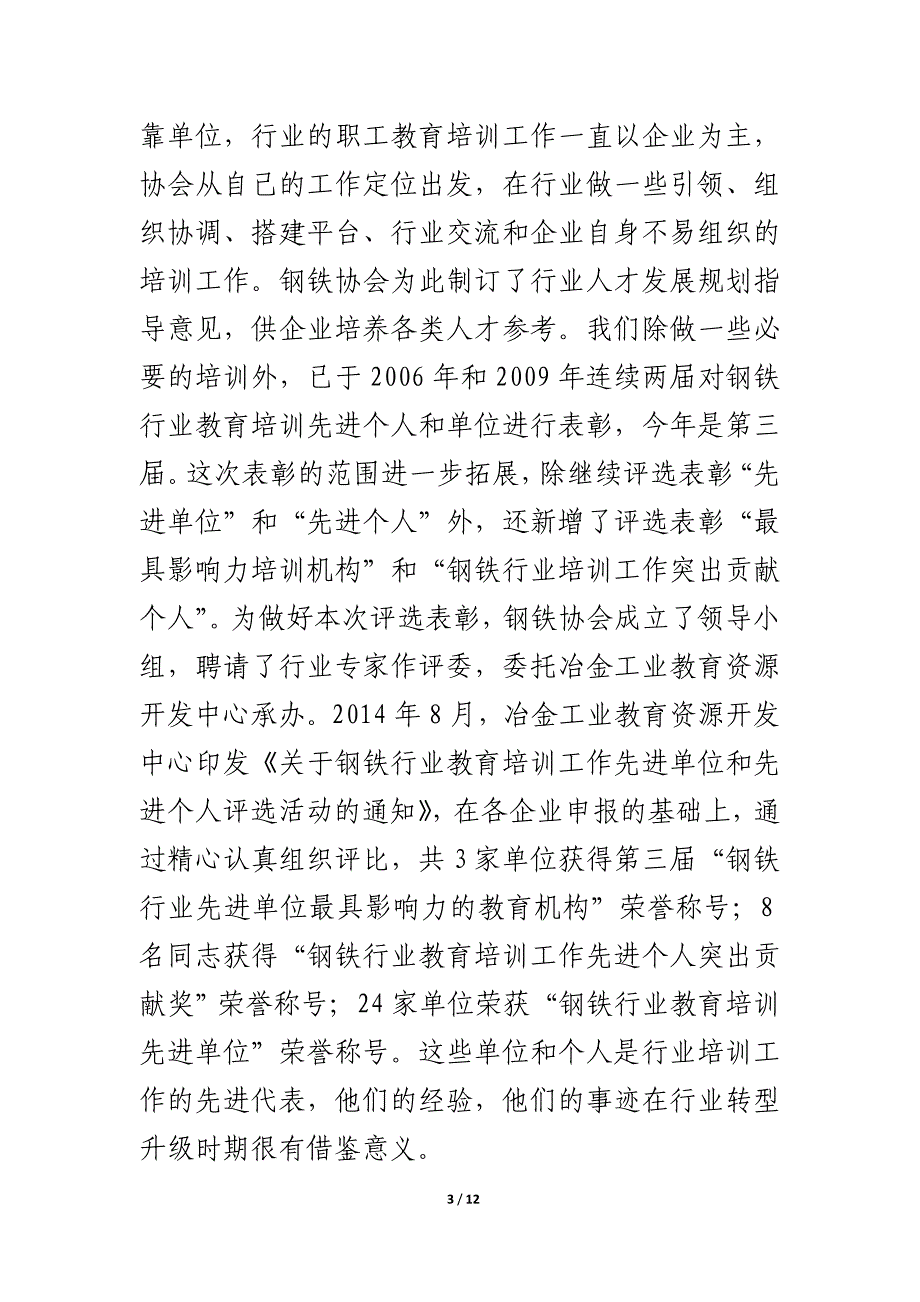 靠单位，行业的职工教育培训工作一直以企业为主，
协会从自己的工作定位出发，在行业做一些引领、组
织协调、搭建平台、行业交流和企业自身不易组织的
培训工作。钢铁协会为此制订了行业人才发展规划指
导意见，供企业培养各类人才参考。我们除做一些必
要的培训外，已于 2006 年和 2009 年连续两届对钢铁
行业教育培训先进个人和单位进行表彰，今年是第三
届。这次表彰的范围进一步拓展，除继续评选表彰“先
进单位”和“先进个人”外，还新增了评选表彰“最
具影响力培训机构”和“钢铁行业培训工作突出贡献
个人”。为做好本次评选表彰，钢铁协会成立了领导小
组，聘请了行业专家作评委，委托冶金工业教育资源
开发中心承办。2014 年 8 月，冶金工业教育资源开发
中心印发《关于钢铁行业教育培训工作先进单位和先
进个人评选活动的通知》，在各企业申报的基础上，通
过精心认真组织评比，共 3 家单位获得第三届“钢铁
行业先进单位最具影响力的教育机构”荣誉称号；8
名同志获得“钢铁行业教育培训工作先进个人突出贡
献奖”荣誉称号；24 家单位荣获“钢铁行业教育培训
先进单位”荣誉称号。这些单位和个人是行业培训工
作的先进代表，他们的经验，他们的事迹在行业转型
升级时期很有借鉴意义。
3 / 12